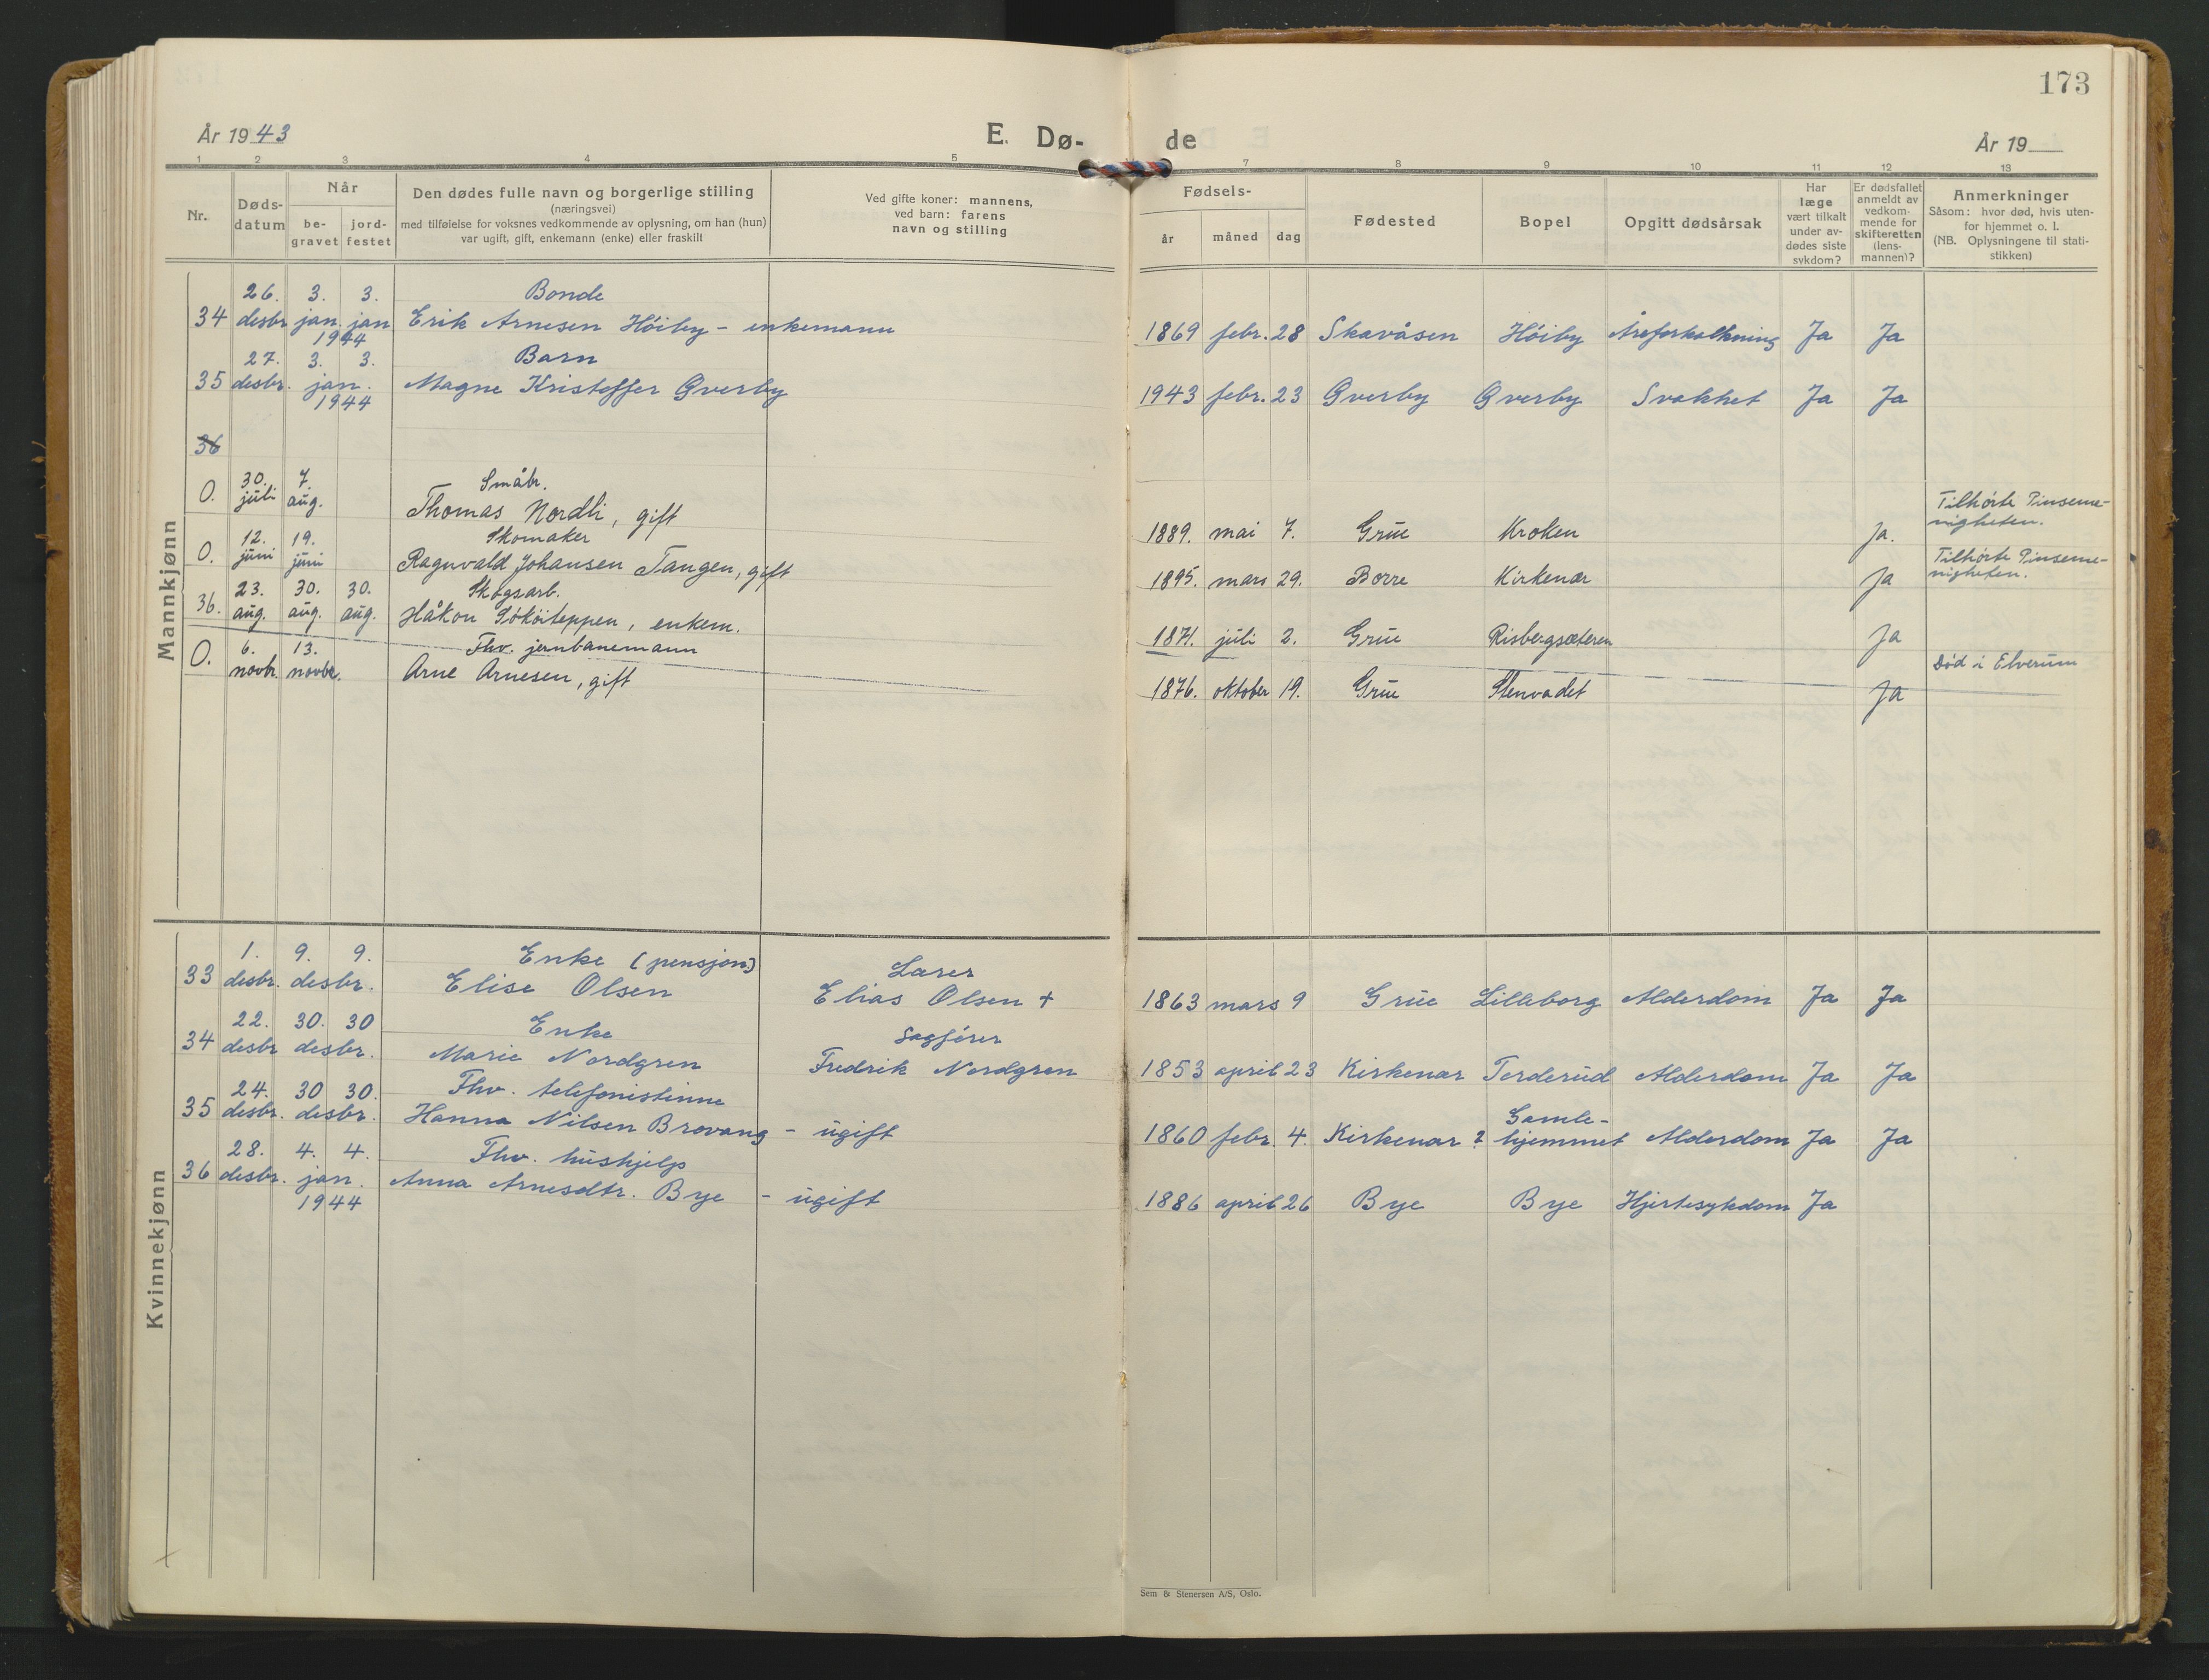 173
År 1943
E. Dø-
de
År 19
1 2 3 4 5 7 8 9 10 11 12 13
Nr.
Døds-
datum
Når
be-
gravet
jord-
festet
Den dødes fulle navn og borgerlige stilling
(næringsvei)
med tilføielse for voksnes vedkommende av oplysning, om han (hun)
var ugift, gift, enkemann (enke) eller fraskilt
Ved gifte koner: mannens,
ved barn: farens
navn og stilling
Fødsels-
år måned dag
Fødested
Bopel
Opgitt dødsårsak
Har
læge
vært tilkalt
under av-
dødes siste
sykdom?
Er dødsfallet
anmeldt av
vedkom-
mende for
skifteretten
(lens-
mannen)?
Anmerkninger
Såsom: hvor død, hvis uten-
for hjemmet o. l.
(NB. Oplysningene til stati-
stikken)
Mannkjønn
26. 3. 3. Bonde
34 desbr jan. jan Erik Arnesen Höiby - enkemann 1869 febr. 28 Skavåsen Höiby Åreforkalkning Ja Ja
1944
27. 3. 3. Barn
35 desbr. jan. Magne Kristoffer Gverby 1943 febr. 23 Gverby Gverby Svakhet Ja Ja
1944
36
30. 7. Småbr.
O. juli aug. Thomas Nordli, gift 1889. mai 7. Grue Kroken Ja. Tilhørte Pinseme-
nigheten.
12. 19. Skomaker
O. juni juni Ragnvald Johansen Tangen, gift 1895. mars 29. Borre Kirkenær Ja Tilhørte Pinseme-
nigheten.
23. 30. 30. Skogsarb.
36. aug. aug. aug. Håkon enkem. 1871. juli 2. Grue Risbergsæteren Ja
6. 13. Fhv. jernbanemann
O. novbr. novbr. Arne Arnesen, gift 1876. oktober 19. Grue Stenvadet Ja Død i Elverum
Kvinnekjønn
1. 9. 9. Enke (pensjon) Lærer
33 desbr. desbr. Elise Olsen Elias Olsen + 1863 mars 9 Grue Lilleborg Alderdom Ja Ja
22. 30. 30 Enke Sagfører
34 desbr desbr. Marie Nordgren Fredrik Nordgren 1853 april 23 Kirkenær Torderud Alderdom Ja Ja
24. 30 30. Fhv. telefonistinne
35 desbr. desbr. Hanna Nilsen Brovang - ugift 1860 febr. 4. Kirkenær ? Gamle-
hjemmet Alderdom Ja Ja
28. 4. 4. Fhv. hushjelp
36 desbr. jan. Anna Arnesdtr. Bye - ugift 1886 april 26 Bye Bye Hjertesykdom Ja
1944
Sem & Stenersen A/S, Oslo.